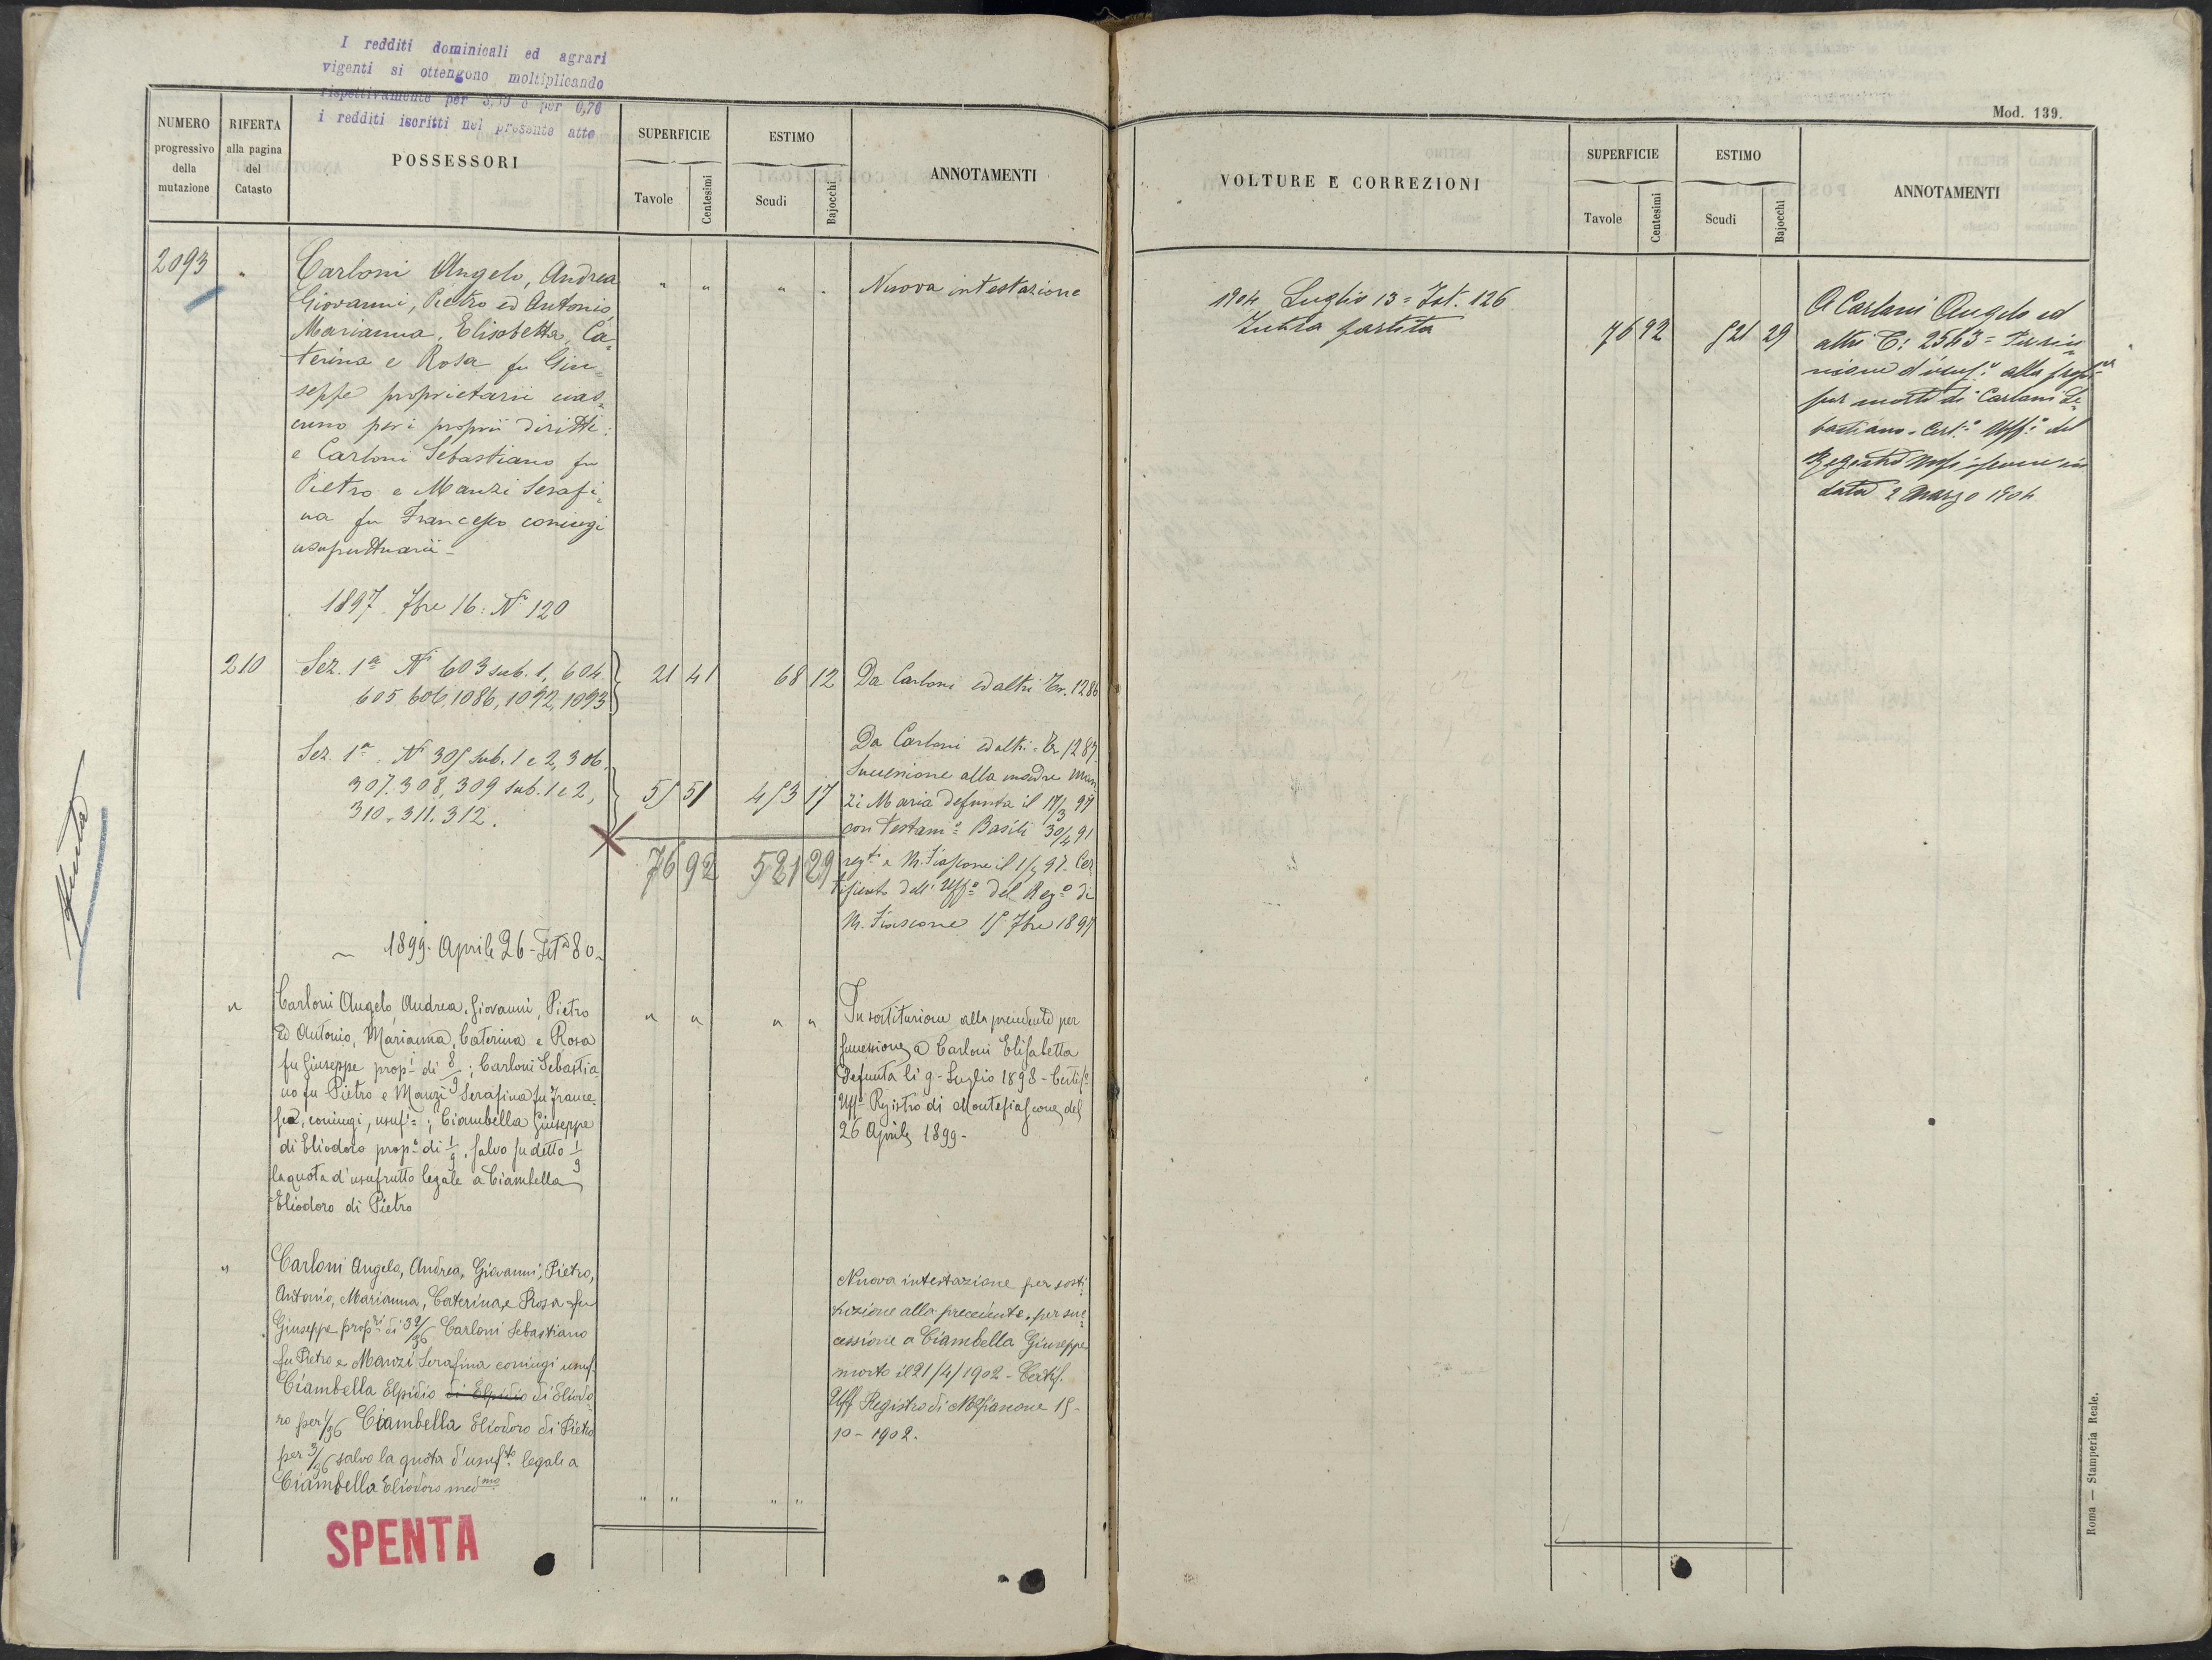 I redditi dominicali ed agrari
vigenti si ottengono moltiplicando
rispettivamente per e per 0,70
i redditi iscritti nel presente atto
NUMERO
progressivo
della
mutazione
RIFERTA
alla pagina
del
Catasto
POSSESSORI
SUPERFICIE
Tavole
Centesimi
ESTIMO
Scudi
Bajocchi
ANNOTAMENTI
2093
Carloni Angelo, Andrea
Giovanni, Pietro ed Antonio,
Marianna, Elisabetta, Ca=
terina e Rosa fu Giu=
seppe proprietarii cias=
cuno per i proprii diritti:
e Carloni Sebastiano fu
Pietro e Manzi Serafi=
na fu Francesco coniugi
usufruttuarii -
" " " "
Nuova intestazione
1897. 7bre 16: N° 120
210
Sez. 1ª N° 603 sub. 1, 604.
605 606, 1086, 1092, 1093
21 41 68 12
Da Carloni ed altri Tr. 1286
Sez. 1ª. N° 305 sub. 1 e 2, 306.
307. 308, 309 sub. 1 e 2,
310. 311. 312.
55 51 453 17
76 92 521 29
Da Carloni ed altri = Tr. 1287.
Successione alla madre Man
zi Maria defunta il 17/3 97
con Testam° Basili 30/4 91
regto a M. Fiascone il 1/ 97. Cer
tificato dell' Uffo del Rego di
M. Fiascone 15 7bre 1897
Spenta
1899. Aprile 26 - Ist° 80
"
Carloni Angelo, Andrea, Giovanni, Pietro
ed Antonio, Marianna, Caterina e Rosa
fu Giuseppe propi di 8/9; Carloni Sebastia=
no fu Pietro e Manzi Serafina fu France=
sco, coniugi, usufi; Ciambella Giuseppe
di Eliodoro propo di 1/9, salvo su detto 1/9
la quota d'usufrutto legale a Ciambella
Eliodoro di Pietro
" " " "
In sostituzione alla precedente per
successione a Carloni Elisabetta
defunta li 9 - Luglio 1898 - Certifo
Uffo Registro di Montefiascone del
26 Aprile 1899 -
"
Carloni Angelo, Andrea, Giovanni, Pietro,
Antonio, Marianna, Caterina e Rosa fu
Giuseppe propri di 32/36 Carloni Sebastiano
fu Pietro e Manzi Serafina coniugi usuf.
Ciambella Elpidio di Elpidio di Eliodo
ro per 1/36 Ciambella Eliodoro di Pietro
per 3/36 salvo la quota d'usufto legale a
Ciambella Eliodoro medmo
" " " "
Nuova intestazione per sosti
tuzione alla precedente, per suc=
cessione a Ciambella Giuseppe
morto il 21/4/1902 - Certif.
Uff Registro di Mfiascone 15 -
10 - 1902.
SPENTA
Mod. 139.
VOLTURE E CORREZIONI
SUPERFICIE
Tavole
Centesimi
ESTIMO
Scudi
Bajocchi
ANNOTAMENTI
1904 Luglio 13 = Ist. 126
Tutta partita
76 92 521 29
A Carloni Angelo ed
altri T: 2563 = Per riu
nione d'usufo alla propr
per morte di Carloni Se
bastiano. Certo Uffo del
Registro Mfiascone in
data 2 Marzo 1904
Roma — Stamperia Reale.